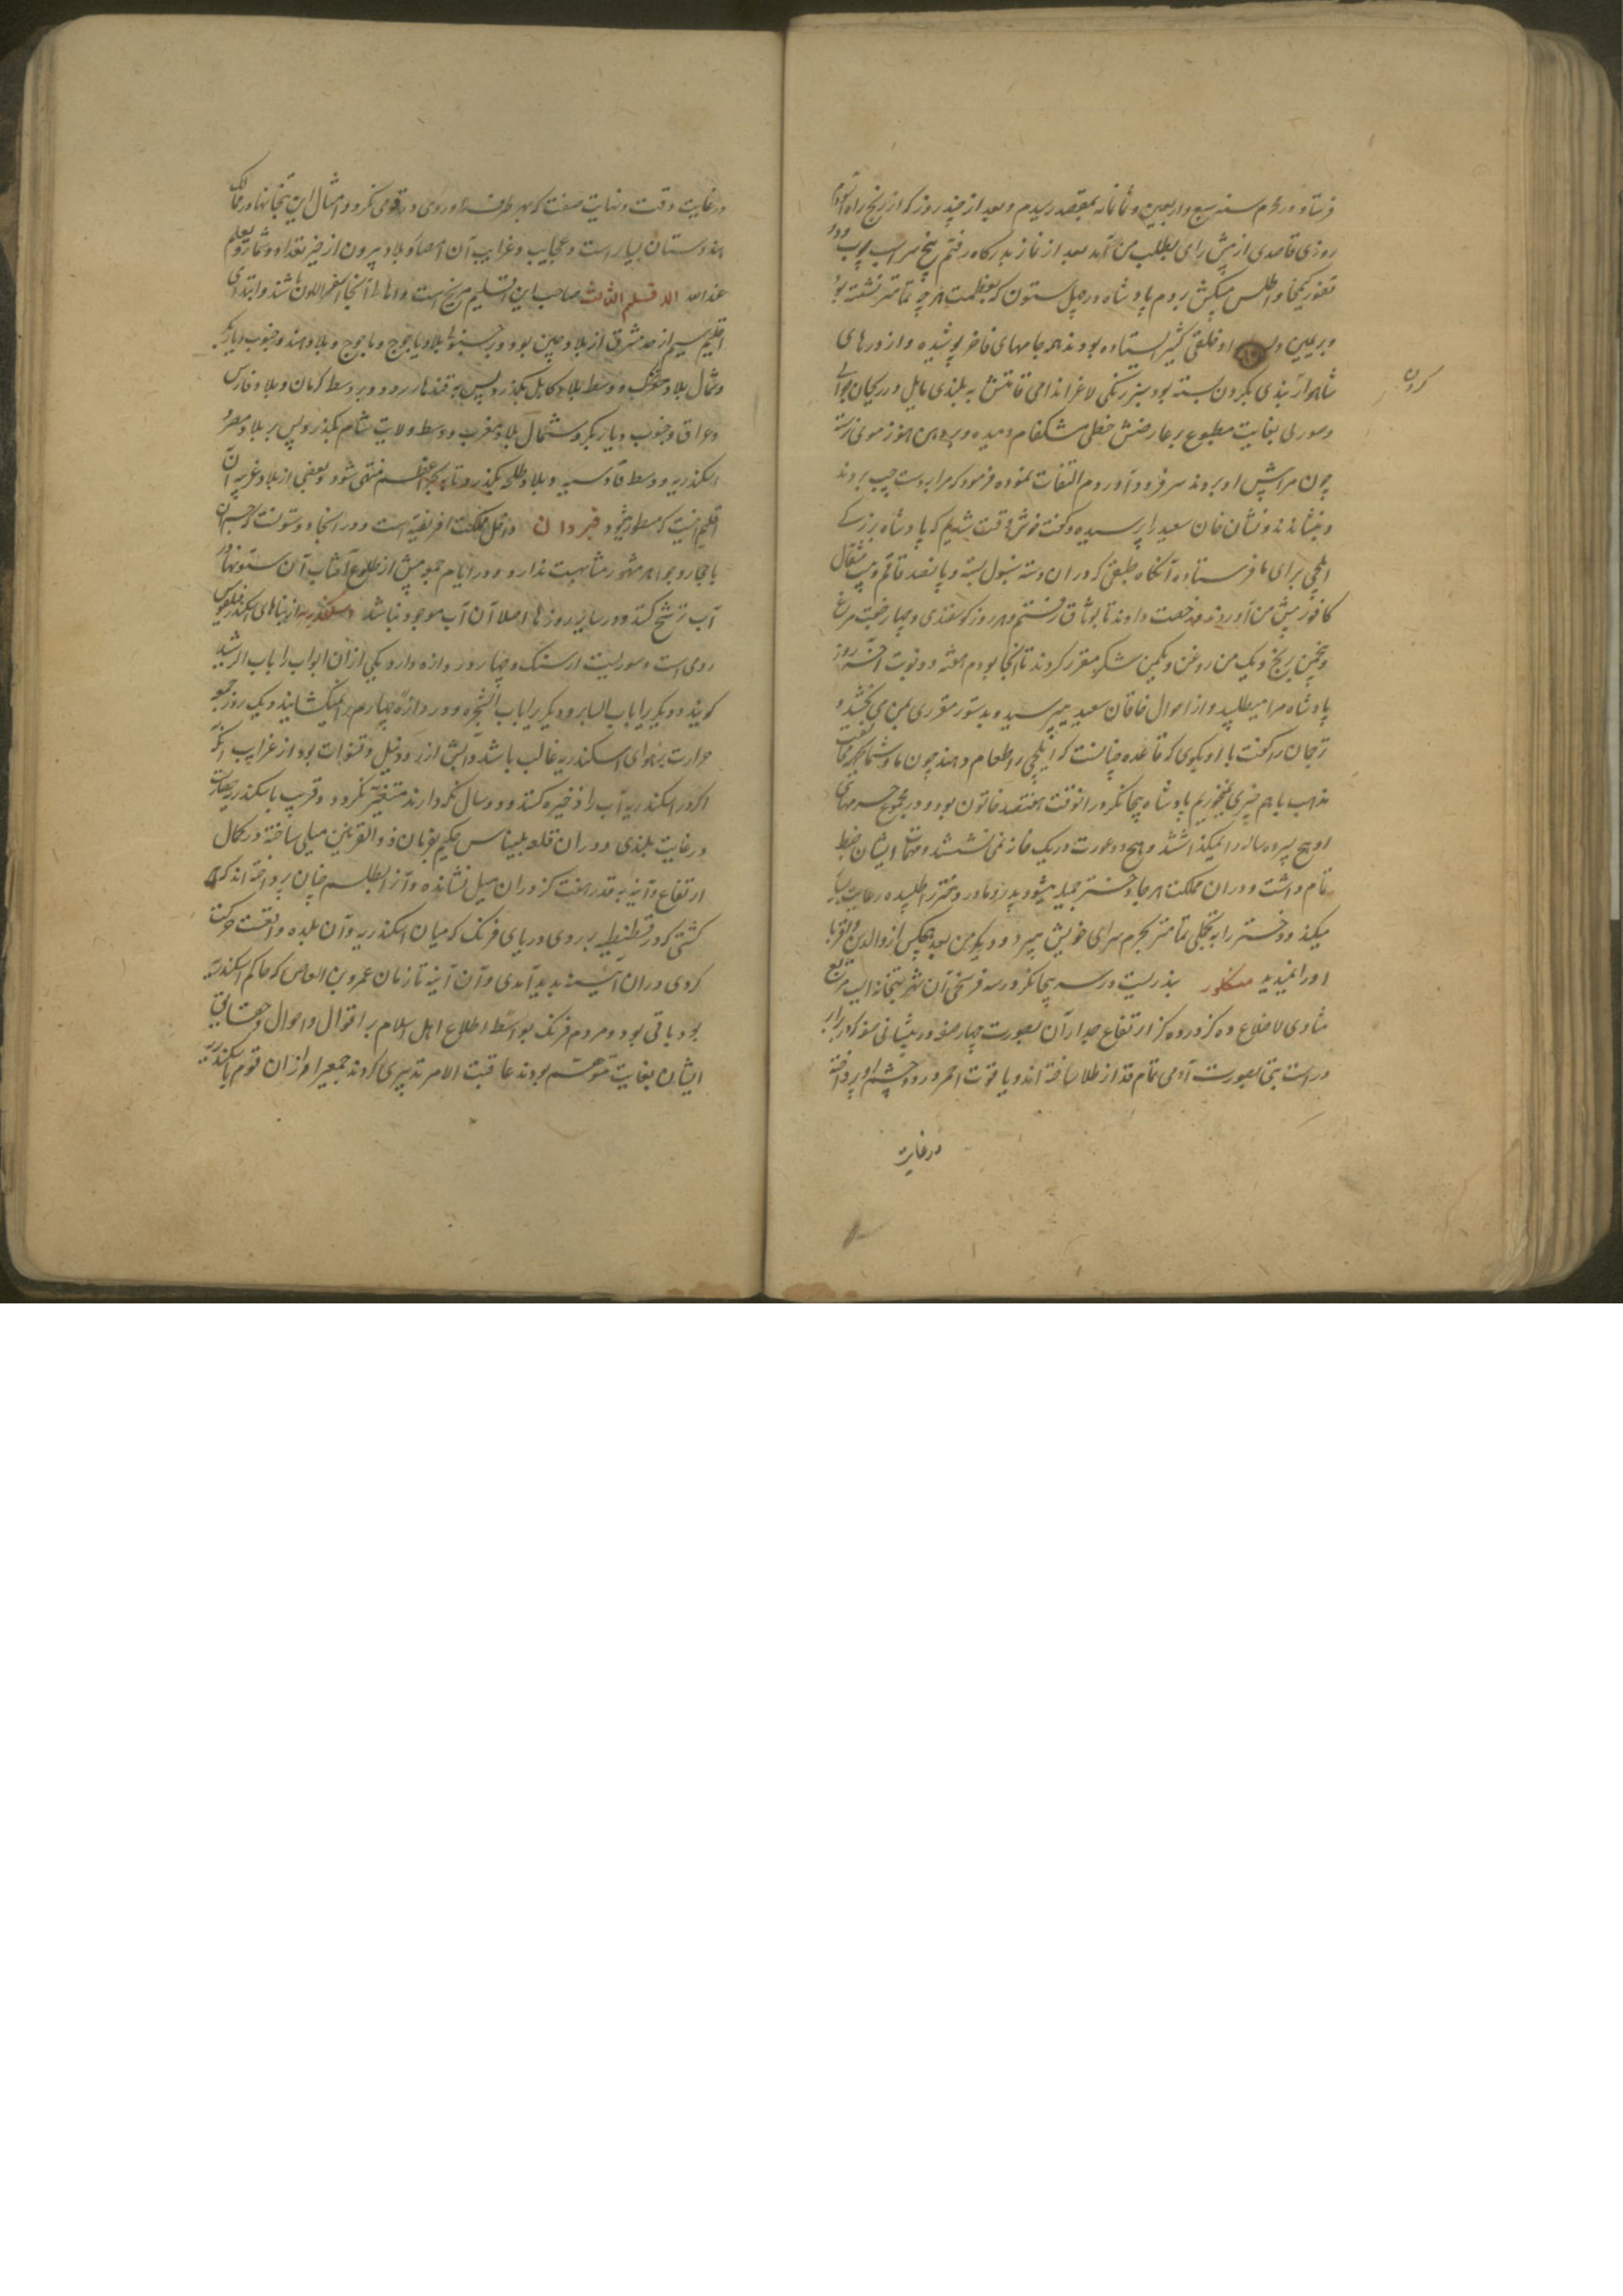 فرستاد و در محرم سنه سبع و اربعین و ثمانمائه بمقصد رسیدم و بعد از چند روز که از رنج راه آسودم
روزی قاصدی از پیش رای بطلب من آمد بعد از نماز بدرگاه رفتم پنج سر اسب خوب و دو
تقوز کمخا و اطلس پیشکش بردم پادشاه در چهل ستون که بعظمت هرچه تمامتر نشسته بود
و بر یمین و یسار او خلقی کثیر ایستاده بودند همه جامهای فاخر پوشیده و از درهای
شاهوار بندی بکردن بسته بود سبز رنگی لاغر اندامی قامتش به بلندی مایل و در ریحان جوانی
کردن
و صورتی بغایت مطبوع بر عارضش خطی مشکفام دمیده و بر ذقن هنوز موی نرسته
چون مرا پیش او بردند سر فرود آوردم التفات نموده فرمود که مرا بر دست چپ بردند
و بنشاندند و نشان خان سعید را پرسیده و گفت خوش وقت شدیم که پادشاه بزرگ
ایلچی برای ما فرستاده آنگاه طبقی که در ان دسته تنبول بسته و پانصد فانم و بیست مثقال
کافور پیش من آوردند و رخصت دادند تا بوثاق رفتم و هر روز گوسفندی و چهار جفت مرغ
و پنج من برنج و یک من روغن و یکمن شکر مقرر کردند تا انجا بودم هفته دو نوبت آخر روز
پادشاه مرا میطلبید و از احوال خاقان سعید میپرسید و بدستور مقرری بمن می بخشید و
ترجمان را گفت با او بگوی که قاعده چنانست که ایلچی را طعام دهند چون ما و شما بجهت مخالفت
مذهب باهم چیزی نمیخوریم پادشاه بیجانگر در انوقت هفتصد خاتون بود و در مجموع حرمهای
او هیچ پسر ده ساله را نمیگذاشتند و هیچ دو عورت در یک خانه نمی نشستند و مهمات ایشان ضبط
تمام داشت و در ان مملکت هر جا دختر جمیله میشود پدر و مادر دختر را طلبیده رعایت بسیار
میکند و دختر را به تجملی تمامتر بحرم سرای خویش میبرد و دیگر من بعد هیچکس از والدین و اقربا
او را نمیبیند منکلور بندریست در سر بیجانگر در سه فرسخی آن شهر بتخانه ایست مربع
متساوی الاضلاع ده گز در ده گز ارتفاع جدار آن بصورت چهار صفه در پیشانی صفه که در برابر
در است بتی بصورت آدمی تمام قد از طلا ساخته اند و یاقوت احمر در دو چشم او پرداخته
در غایت
در غایت دقت و نهایت صنعت که بهر طرف او روی در تو می نگرد و امثال این بتخانها در ممالک
هندوستان بسیار است و عجایب و غرایب آن امصار و بلاد بیرون از حیز تعداد و شمار و العلم
عند الله الاقلیم الثالث صاحب این اقلیم مریخ است و اهالی آنجا اسمر اللون باشند و ابتدای
اقلیم سیم از حد مشرق از بلاد چین بود و بر جنوب بلاد یاجوج و ماجوج و بلاد هند و جنوب دیار بکر
و شمال بلاد مغرب و وسط بلاد کابل بگذرد پس به قندهار رود و بر وسط کرمان و بلاد فارس
و عراق و جنوب دیار بکر و شمال بلاد مغرب و وسط ولایت شام بگذرد پس بر بلاد مصر و
اسکندریه و وسط قادسیه و بلاد طلحه بگذرد تا ببحر اعظم منتهی شود و بعضی از بلاد غربیه آن
اقلیم اینست که مسطور میشود قیروان داخل مملکت افریقیه است و در انجا دو ستونست که جوهر آن
با حجار و جواهر مشهور مشابهت ندارد و در ایام جمعه پیش از طلوع آفتاب آن ستونها از
آب ترشح کند و در سایر روزها اصلا آن آب موجود نباشد اسکندریه از بناهای اسکندر فیلقوس
رومی است و سوریست از سنگ و چهار دروازه دارد یکی از ان ابواب را باب الرشید
گویند و دیگریرا باب البا برو دیگریرا باب الشجره و دروازه چهارم را نمیگشایند و یک روز جمعه
حرارت بر هوای اسکندریه غالب باشد و آبش از رود نیل و قنوات بود از غرایب آنکه
اگر در اسکندریه آب را ذخیره کنند و دو سال نگه دارند متغیر نگردد و قریب باسکندریه عمارتیست
در غایت بلندی و در ان قلعه بلیناس حکیم بفرمان ذو القرنین میلی ساخته در کمال
ارتفاع و آینه به قدر هفت گز در ان میل نشانده و آنرا بطلسم چنان پرداخته اند که هر
کشتی که در قسطنطنیه بر روی دریای فرنگ که میان اسکندریه و آن بلده واقعست حرکت
کردی در ان آینه پدید آمدی و آن آینه تا زمان عمرو بن العاص که حاکم اسکندریه
بود باقی بود و مردم فرنگ بواسطه اطلاع اهل اسلام بر اقوال و احوال و حقایق
ایشان بغایت متوهم بودند عاقبت الامر تدبیری کردند جمعی را از ان قوم باسکندریه